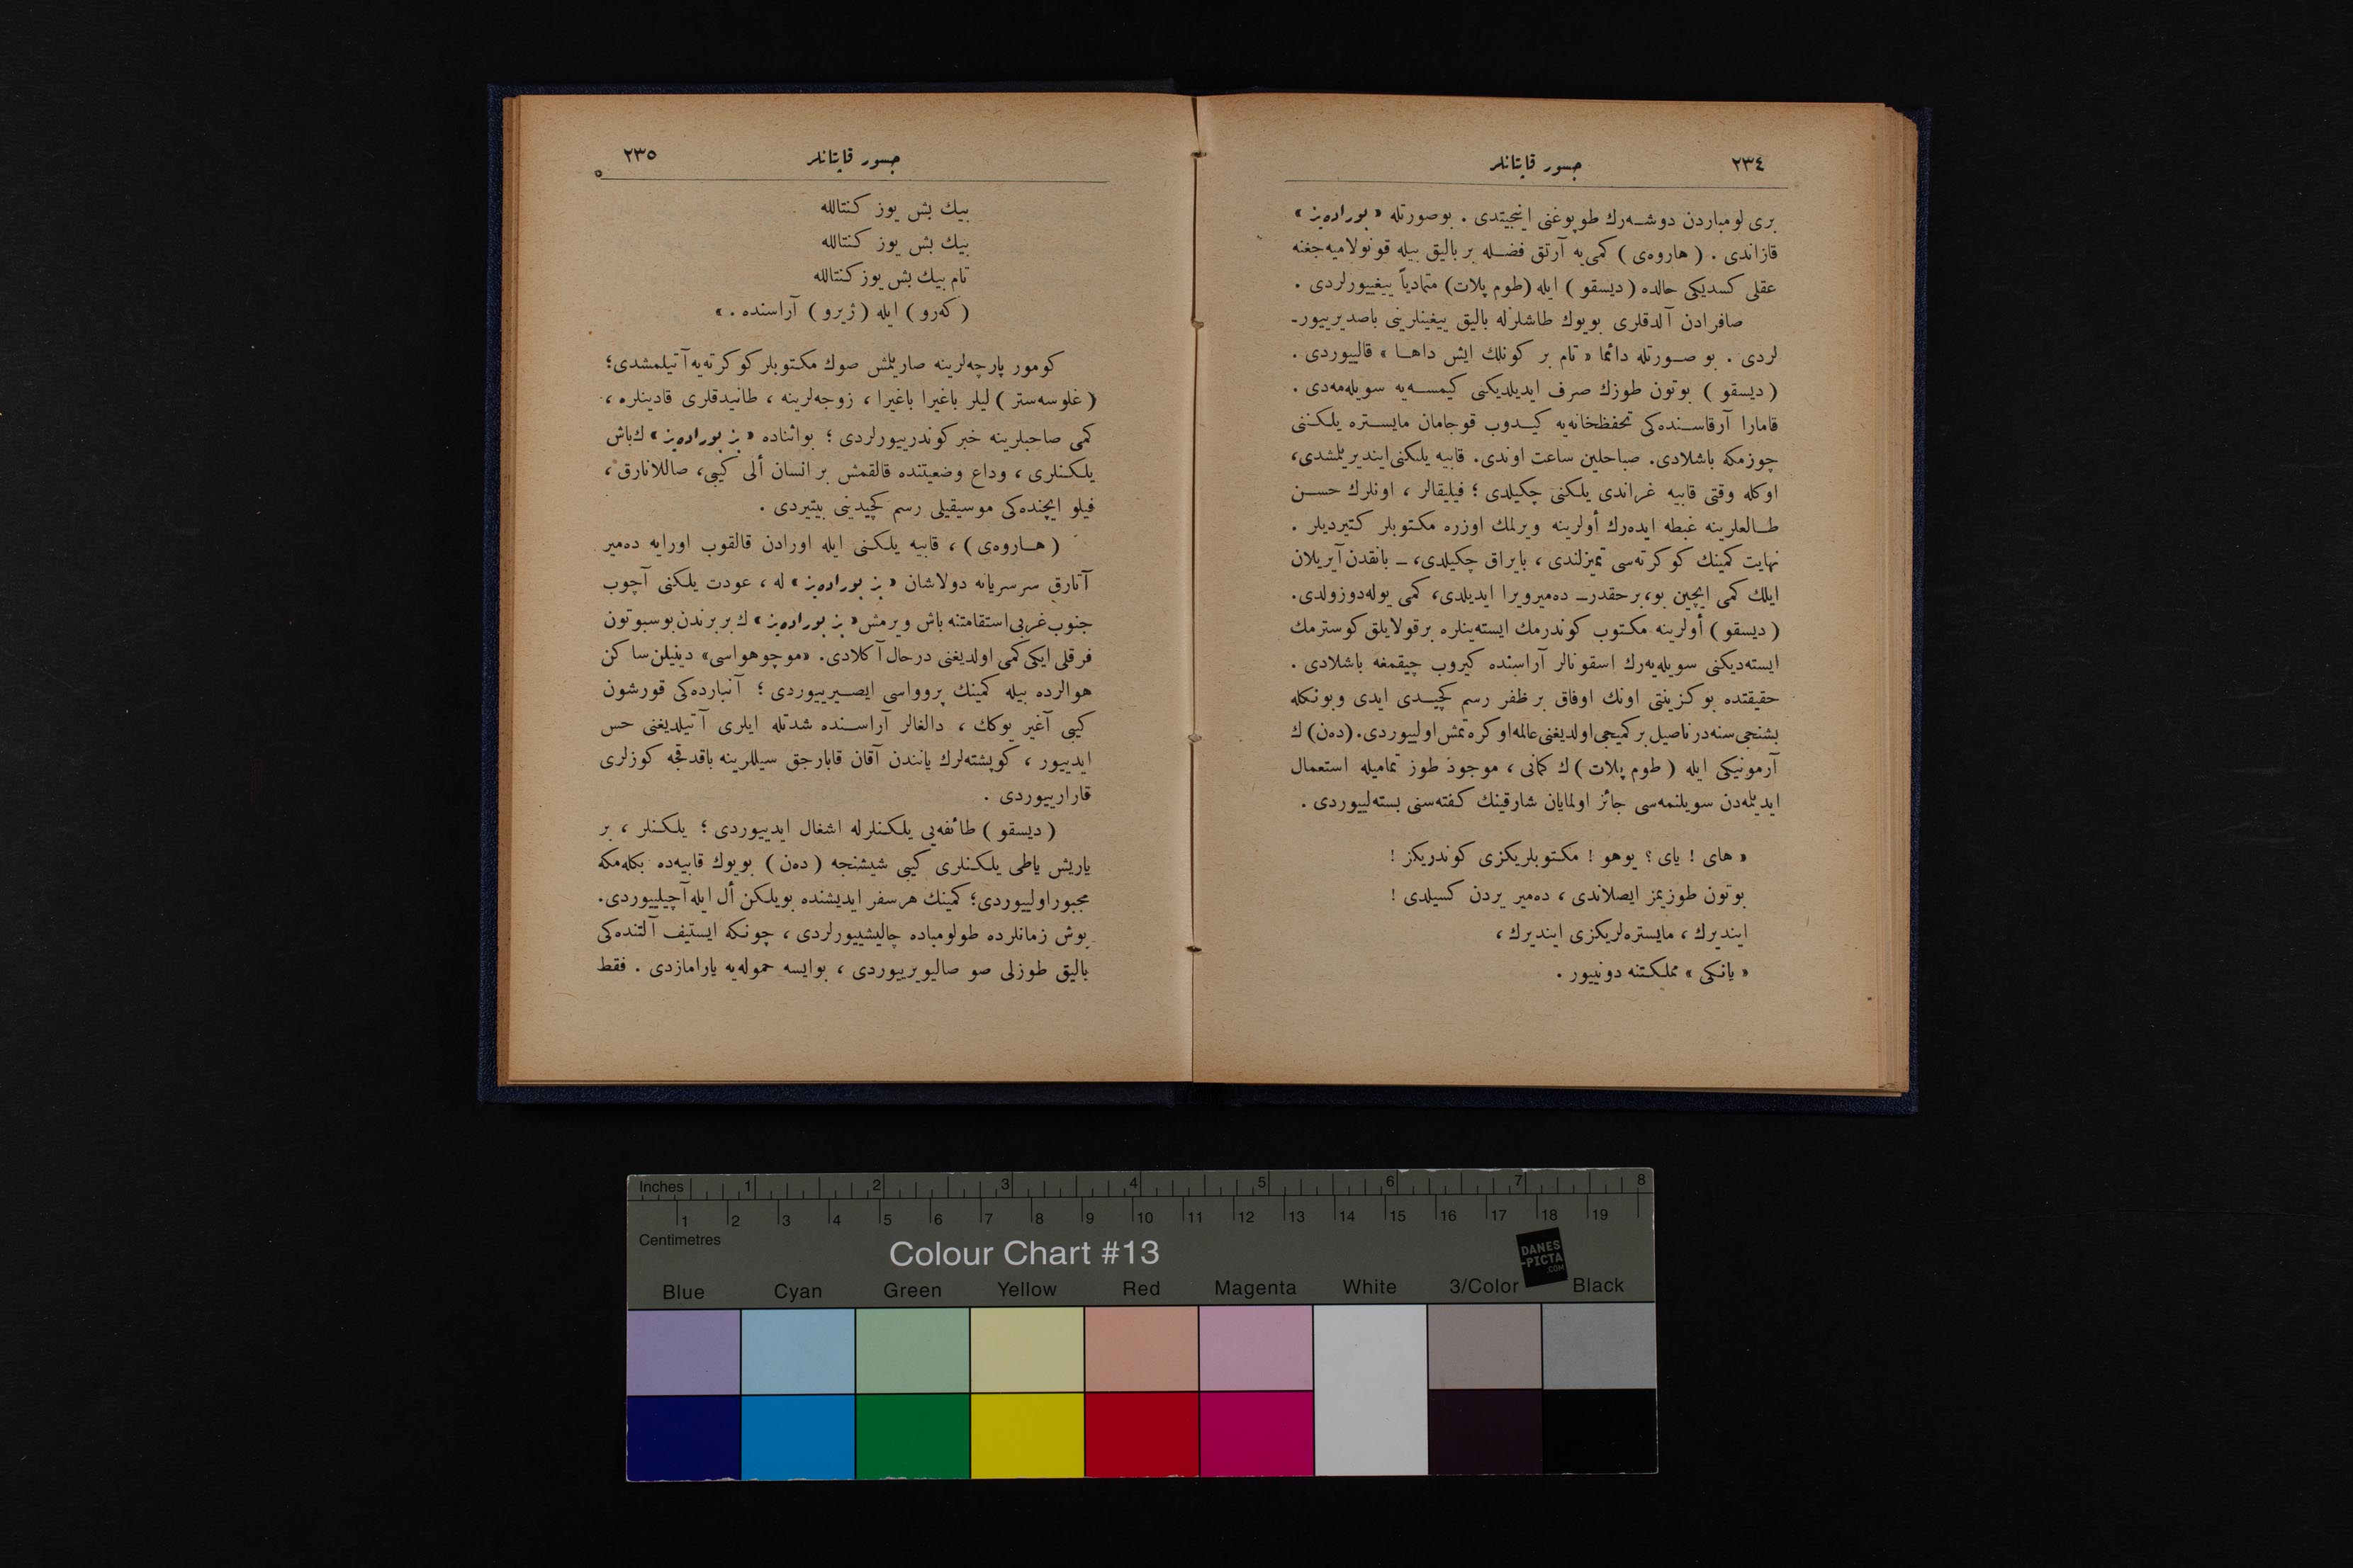 ٢٣٤
جسور قاپتانلر
بری لومباردن دوشـه‌رك طوپوغنی اینجیتدی . بوصورتله « بوراده‌یز »
قازاندی . ( هاروه‌ی ) کمی‌یه آرتق فضـله بر بالیق بیله قونولامیه‌جغنه
عقلی کسدیکی حالده ( دیسقو ) ایله (طوم پلات) متمادیاً ییغییورلردی .
صافرادن آلدقلری بویوك طاشلرله بالیق ییغینلرینی باصدیرییور-
لردی . بو صـورتله دائما « تام بر کونلك ایش داهـا » قالییوردی .
( دیسقو ) بوتون طوزك صرف ایدیلدیکنی کیمسـه‌یه سویله‌مه‌دی .
قامارا آرقاسـنده‌کی تحفظخانه‌یه کیـدوب قوجامان مایستره یلکننی
چوزمکه باشلادی. صباحلین ساعت اوندی. قابیه یلکنی ایندیریلمشدی،
اوکله وقتی قابیه غراندی یلکنی چکیلدی ؛ فیلیقالر ، اونلرك حسـن
طـالعلرینه غبطه ایده‌رك أولرینه ویرلمك اوزره مکتوبلر کتیردیلر .
نهایت کمینك کوکرته‌سی تمیزلندی ، بایراق چکیلدی، ـ بانقدن آیریلان
ایلك کمی ایچین بو، برحقدر ـ ده‌میرویرا ایدیلدی، کمی یوله‌دوزولدی.
( دیسقو ) أولرینه مکتوب کوندرمك ایسته‌ینلره برقولایلق کوسترمك
ایسته‌دیکنی سویله‌یه‌رك اسقونالر آراسنده کیروب چیقمغه باشلادی .
حقیقتده بوکزینتی اونك اوفاق بر ظفر رسم کچیـدی ایدی وبونکله
بشنجی سنه‌در ناصیل برکمیجی اولدیغنی عالمه اوکره‌تمش اولییوردی. (ده‌ن) ك
آرمونیکی ایله ( طوم پلات ) ك کمانی ، موجود طوز تمامیله استعمال
ایدیلمه‌دن سویلنمه‌سی جائز اولمایان شارقینك کفته‌سنی بسته‌لییوردی .
« های ! یای ؟ یوهو ! مکتوبلریکزی کوندریکز !
بوتون طوزیمز ایصلاندی ، ده‌میر یردن کسیلدی !
ایندیرك ، مایستره‌لریکزی ایندیرك ،
« یانکی » مملکتنه دونییور .
جسور قاپتانلر
٢٣٥
بیك بش یوز کنتالله
بیك بش یوز کنتالله
تام بیك بش یوز کنتالله
( که‌رو ) ایله ( ژیرو ) آراسنده . »
کومور پارچه‌لرینه صاریلمش صوك مکتوبلر کوکرته‌یه آتیلمشدی؛
( غلوسه‌ستر ) لیلر باغیرا باغیرا ، زوجه‌لرینه ، طانیدقلری قادینلره ،
کمی صاحبلرینه خبر کوندرییورلردی ؛ بواثناده « بز بوراده‌یز » ك باش
یلکنلری ، وداع وضعیتنده قالقمش بر انسان ألی کیبی، صاللانارق ،
فیلو ایچنده‌کی موسیقیلی رسم کچیدینی بیتیردی .
( هـاروه‌ی ) ، قابیه یلکنی ایله اورادن قالقوب اورایه ده‌میر
آتارق سرسریانه دولاشان « بز بوراده‌یز » له ، عودت یلکنی آچوب
جنوب‌غربی استقامتنه باش ویرمش « بز بوراده‌یز » ك بر برندن بوسبوتون
فرقلی ایکی کمی اولدیغنی درحال آکلادی. «موچوهواسی» دینیلن ساکن
هوالرده بیله کمینك پروواسی ایصـیرییوردی ؛ آنبارده‌کی قورشون
کیبی آغیر یوکك ، دالغالر آراسـنده شدتله ایلری آتیلدیغنی حس
ایدییور ، کوپشته‌لرك یانندن آقان قابارجق سیللرینه باقدقجه کوزلری
قارارییوردی .
( دیسقو ) طائفه‌یی یلکنلرله اشغال ایدییوردی ؛ یلکنلر ، بر
یاریش یاطی یلکنلری کیبی شیشنجه ( ده‌ن ) بویوك قابیه‌ده بکله‌مکه
مجبور اولییوردی؛ کمینك هر سفر ایدیشنده بویلکن أل ایله آچیلییوردی.
بوش زمانلرده طولومباده چالیشییورلردی ، چونکه ایستیف آلتنده‌کی
بالیق طوزلی صو صالیویرییوردی ، بوایسه حموله‌یه یارامازدی . فقط
Inches 1 2 3 4 5 6 7 8
1 2 3 4 5 6 7 8 9 10 11 12 13 14 15 16 17 18 19
Centimetres
Colour Chart #13
DANES
-PICTA
.COM
Blue Cyan Green Yellow Red Magenta White 3/Color Black